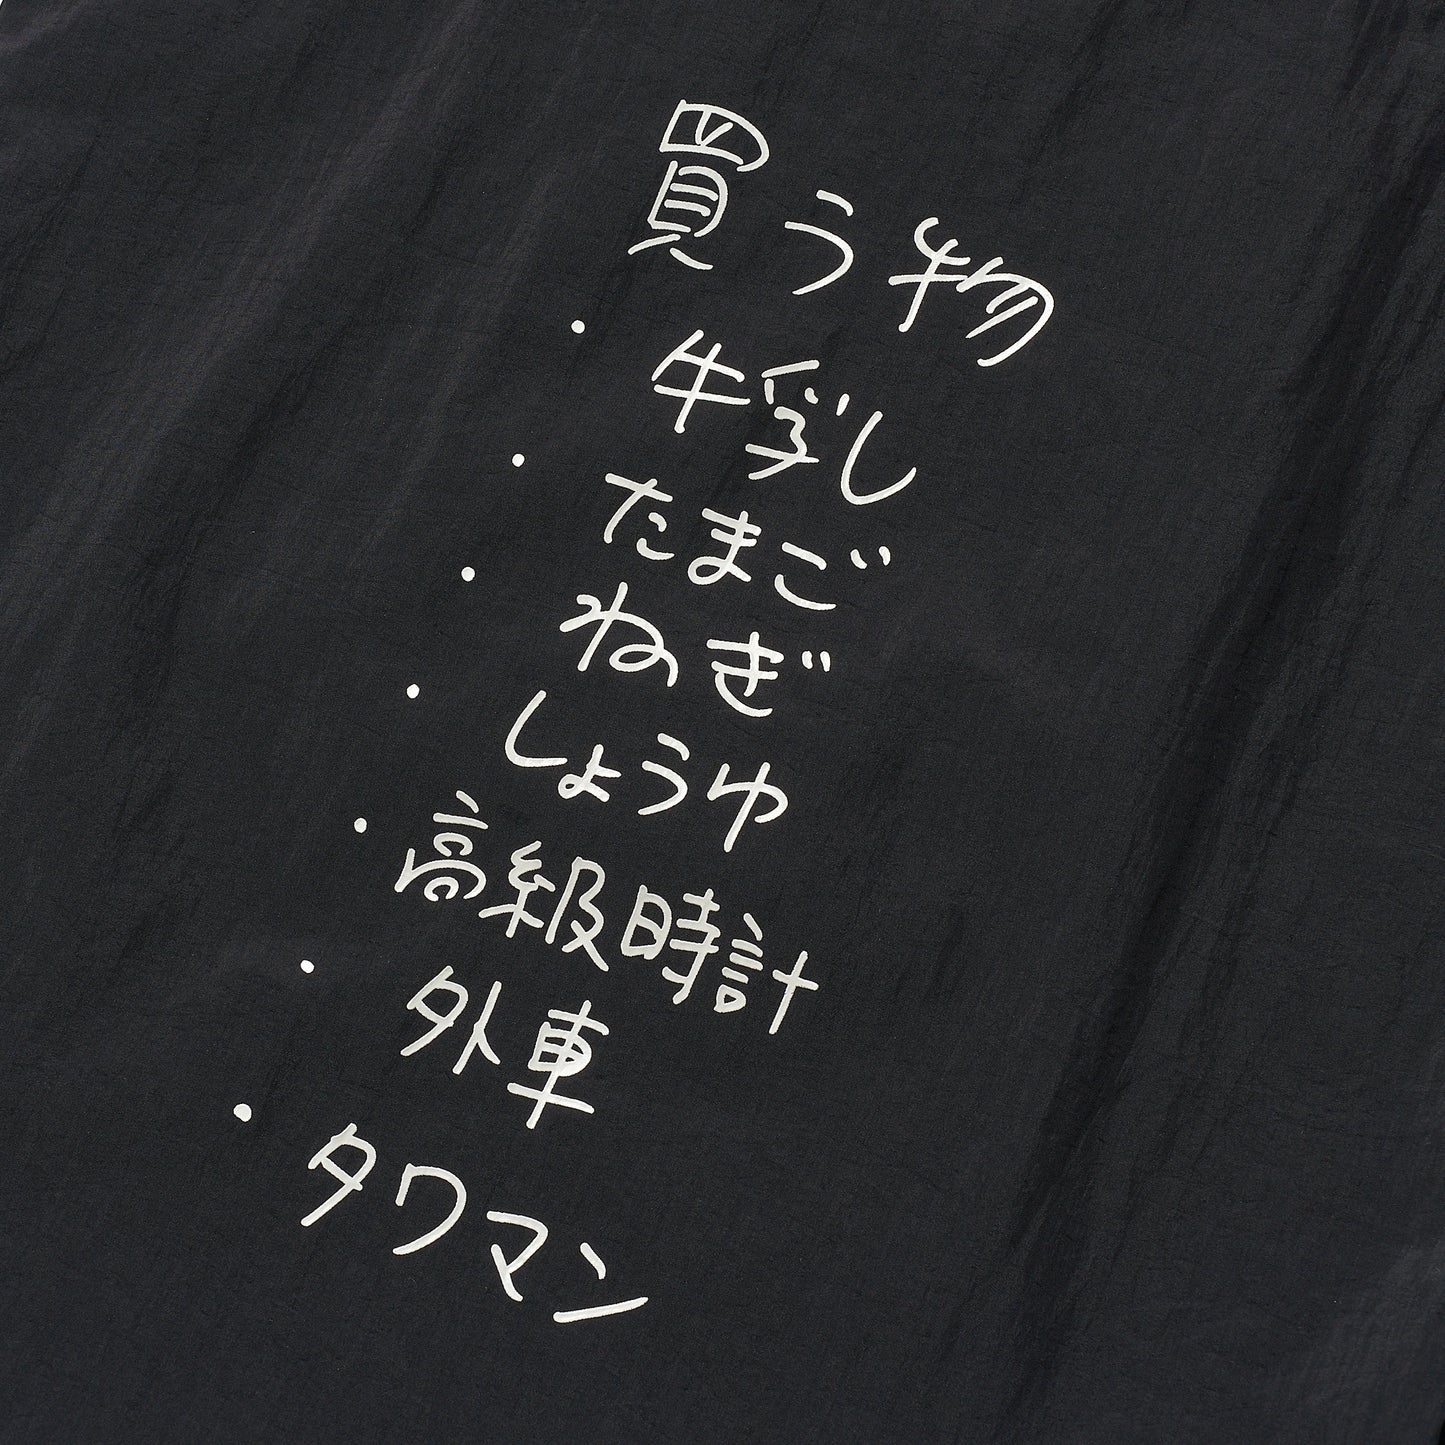 買う物
・牛乳
・たまご
・ねぎ
・しょうゆ
・高級時計
・外車
・タワマン